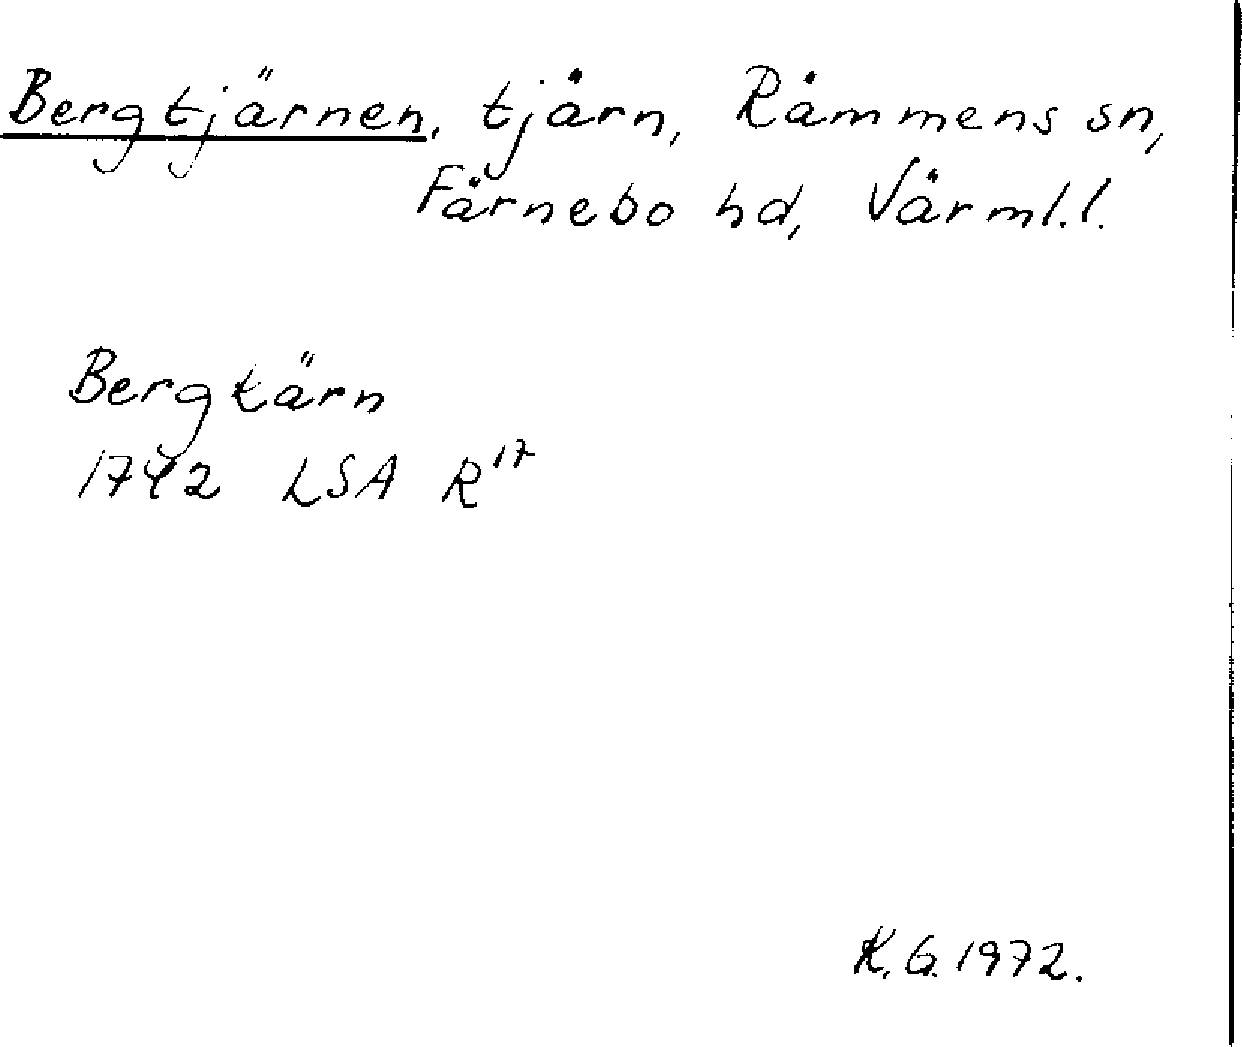 Bergtjärnen, tjärn, Rämmens sn,
Färnebo hd, Värml.l.
Bergtärn
1742 LSA R¹⁷
K.G. 1972.